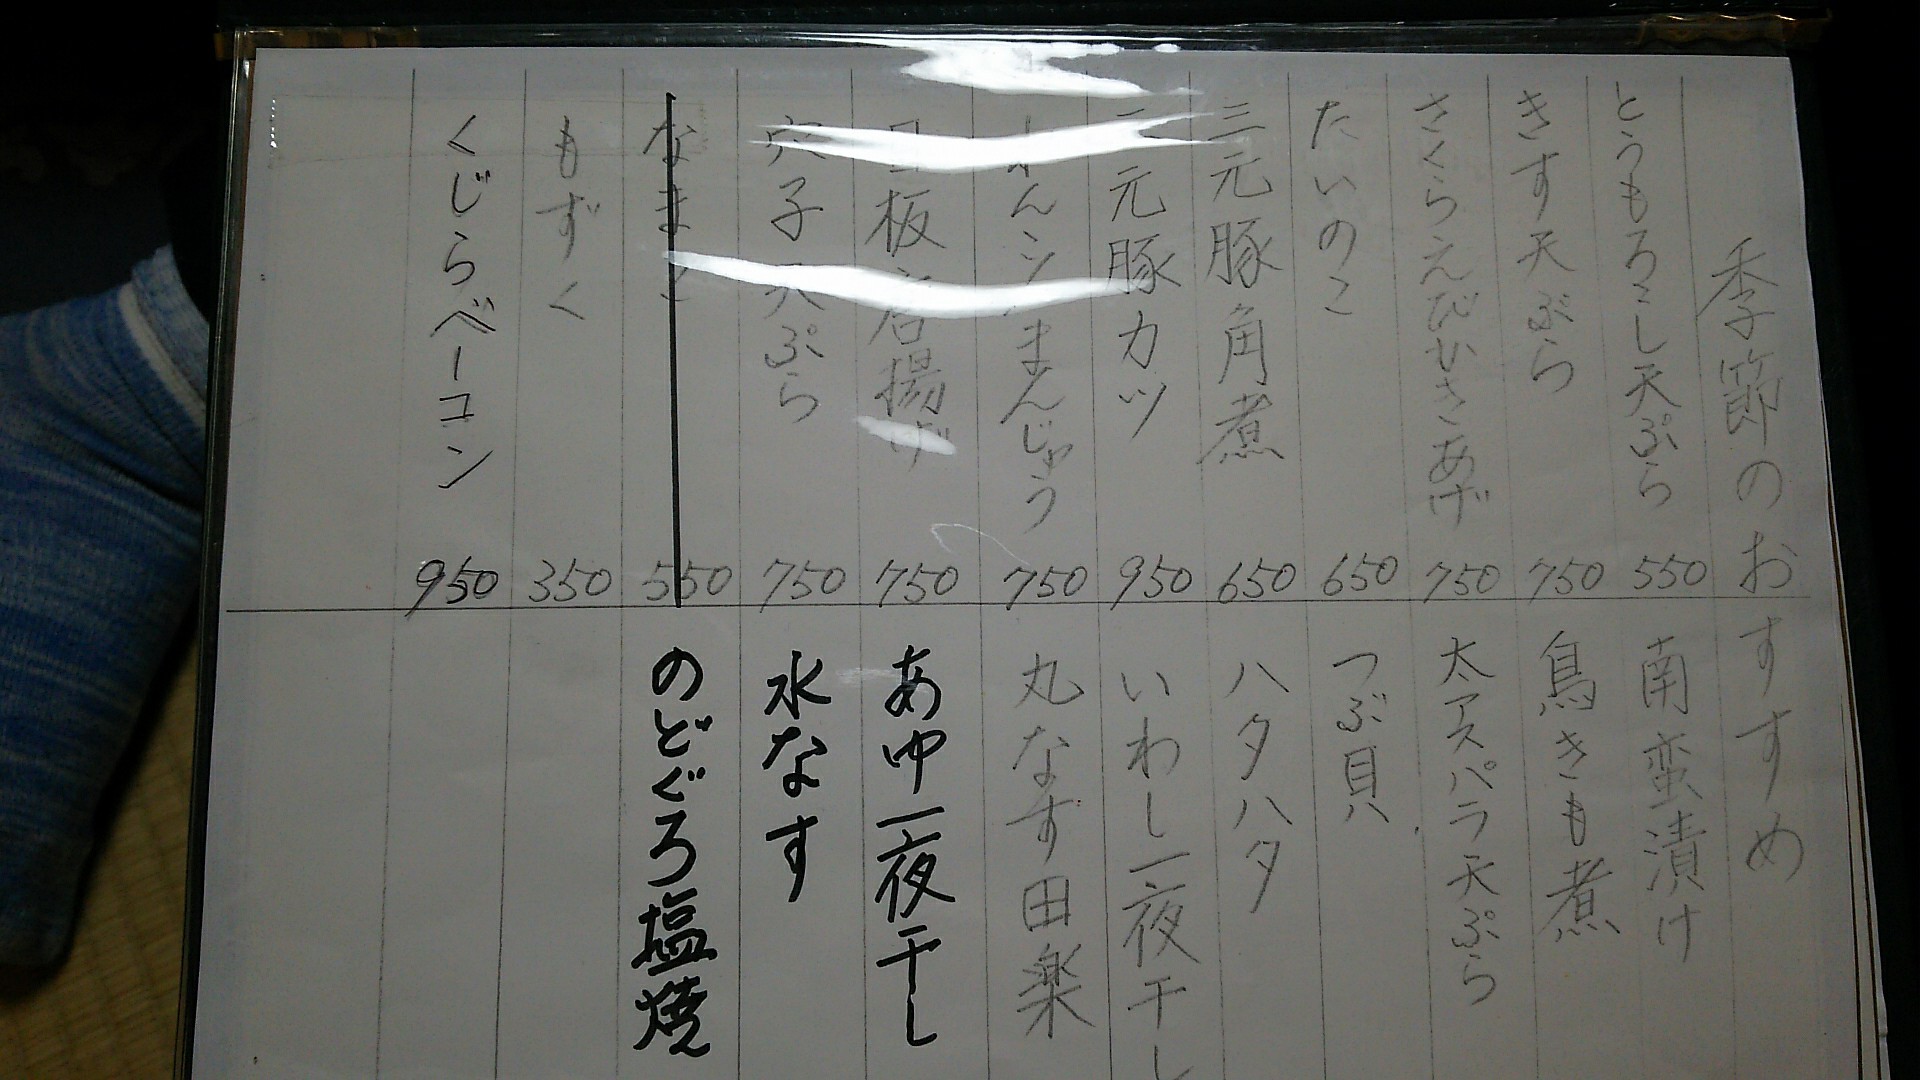 季節のおすすめ
とうもろこし天ぷら 550
きす天ぷら 750
さくらえびかきあげ 750
たいのこ 650
三元豚角煮 650
三元豚カツ 950
れんこんまんじゅう 750
板 揚げ 750
穴子天ぷら 750
なまこ 550
もずく 350
くじらベーコン 950
南蛮漬け
鳥きも煮
太アスパラ天ぷら
つぶ貝
ハタハタ
いわし一夜干し
丸なす田楽
あゆ一夜干し
水なす
のどぐろ塩焼